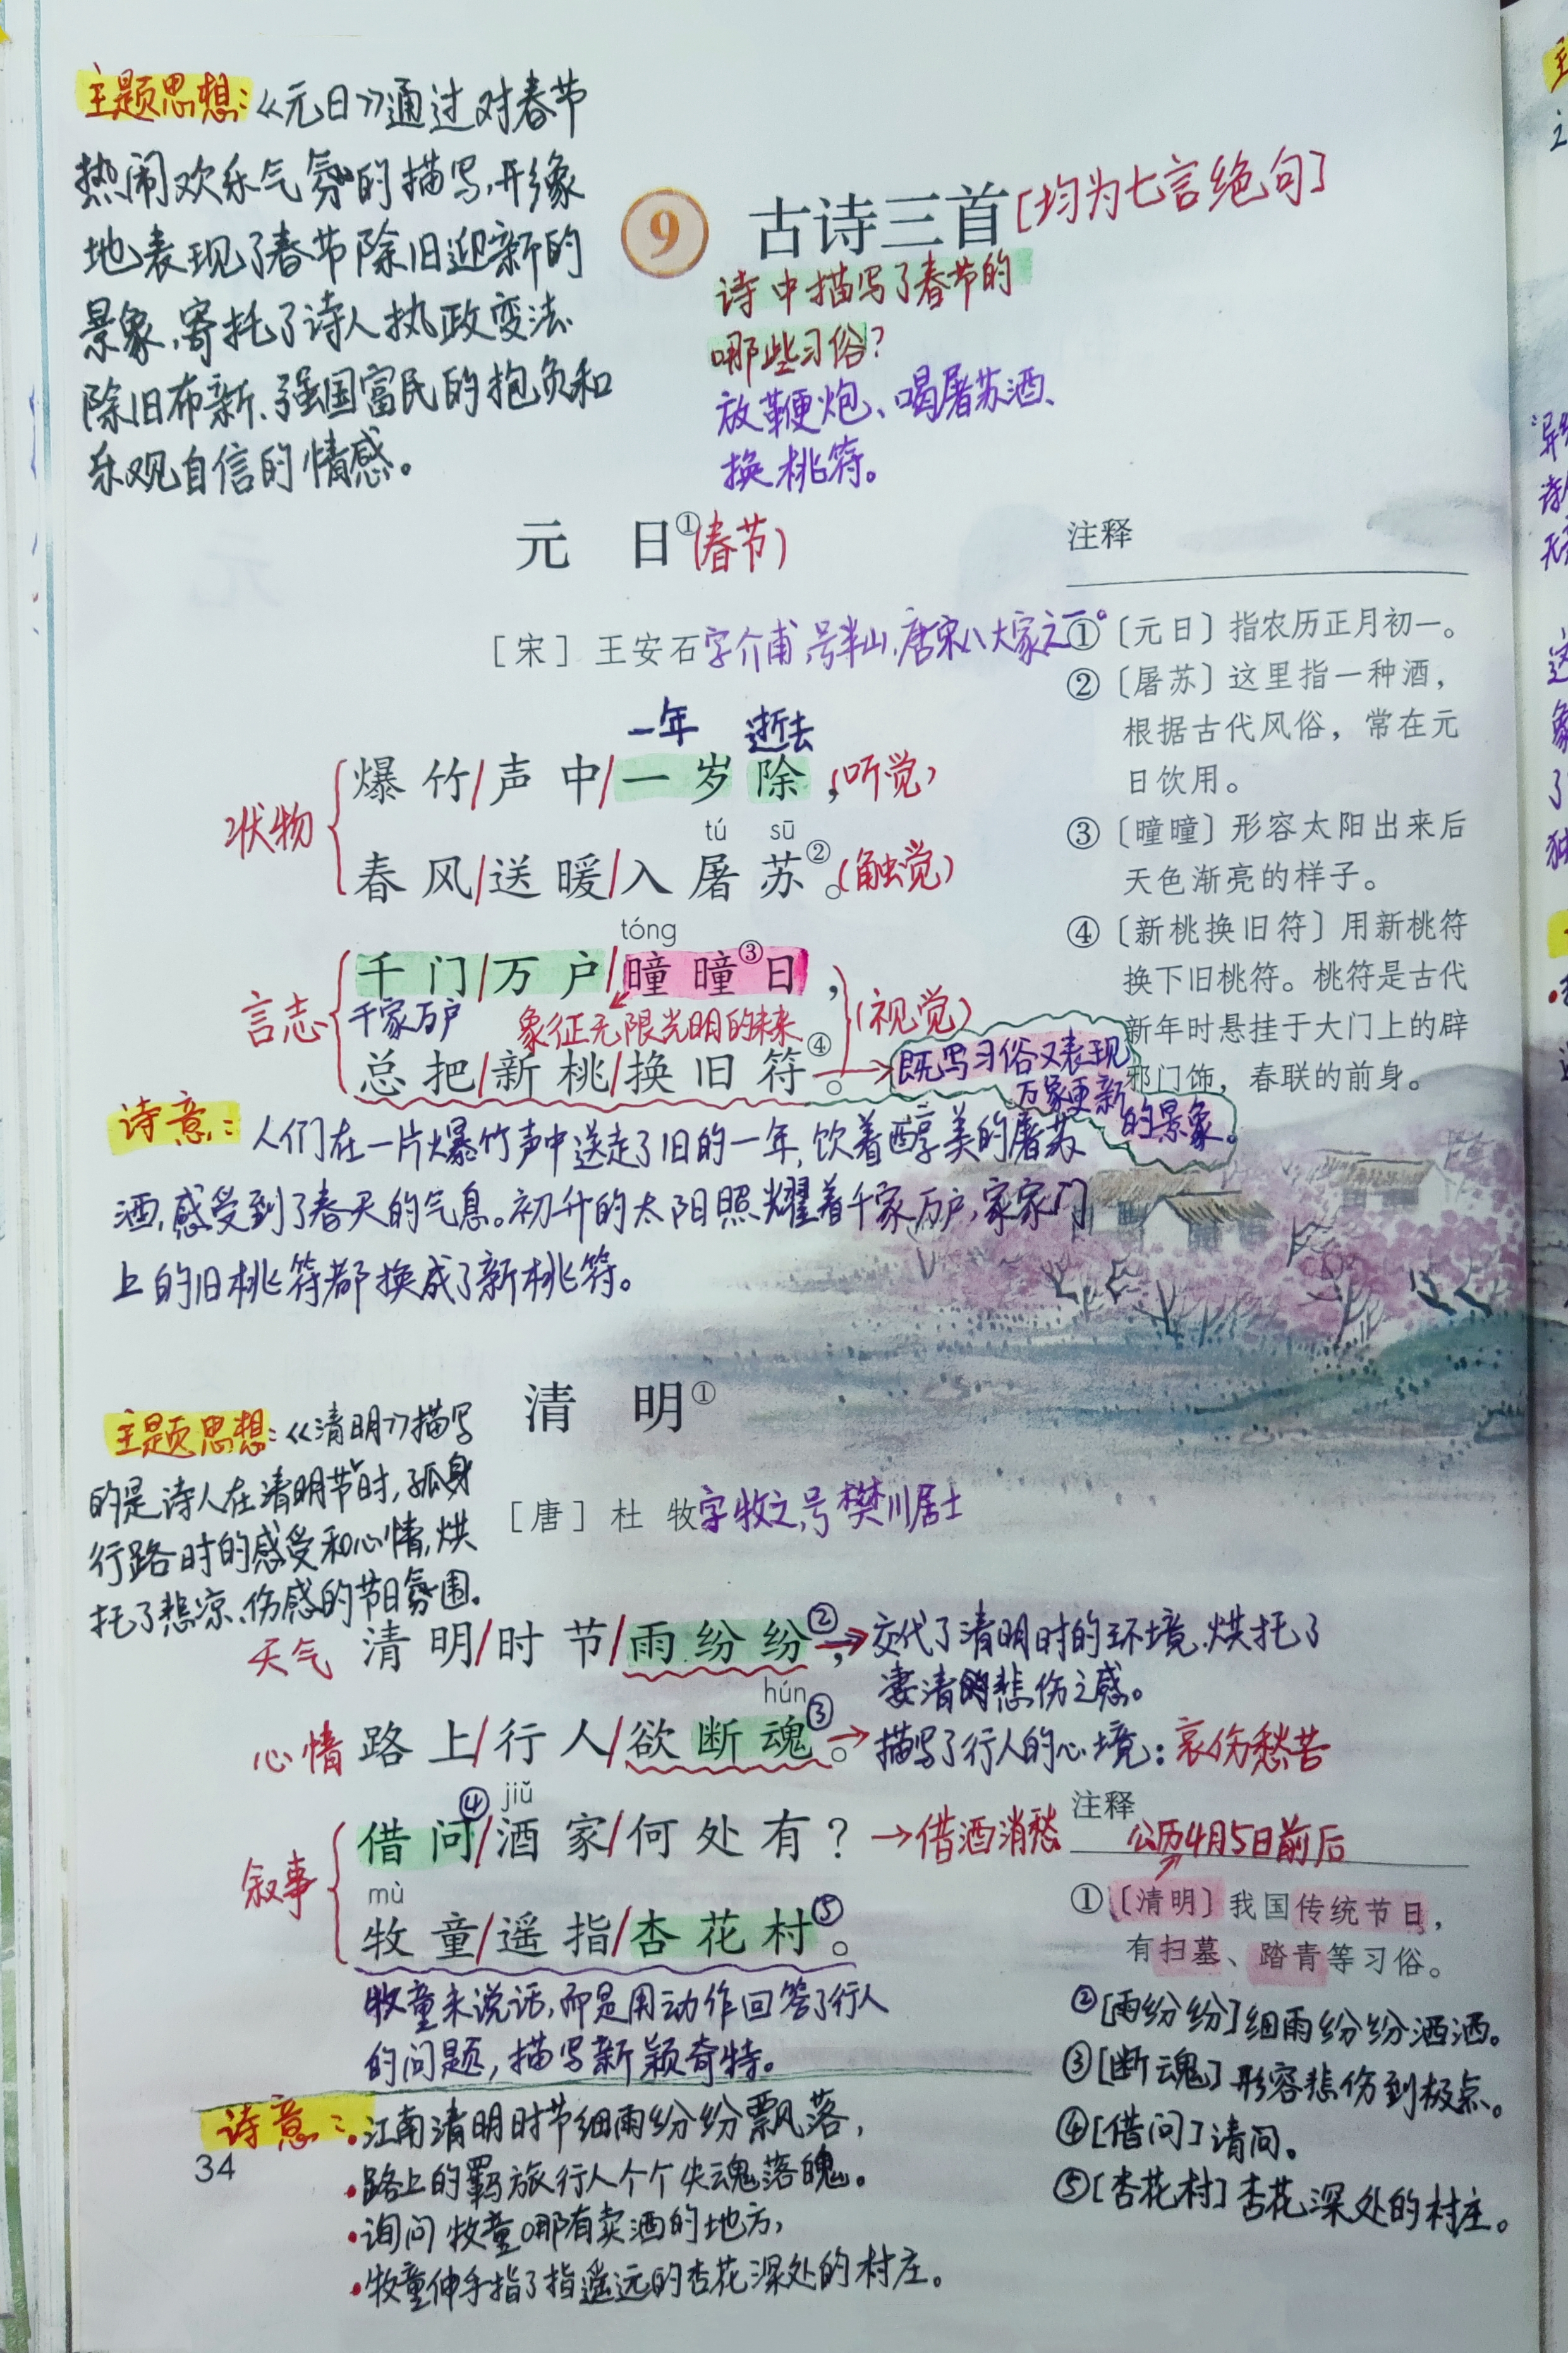 主题思想:《元日》通过对春节
热闹欢乐气氛的描写,形象
地表现了春节除旧迎新的
景象,寄托了诗人执政变法、
除旧布新、强国富民的抱负和
乐观自信的情感。
9 古诗三首[均为七言绝句]
诗中描写了春节的
哪些习俗?
放鞭炮、喝屠苏酒、
换桃符。
元日①(春节)
[宋] 王安石字介甫,号半山,唐宋八大家之一。
一年 逝去
状物
爆竹/声中/一岁除,(听觉)
tú sū
春风/送暖/入屠苏②。(触觉)
tóng
言志
千门/万户/曈曈③日,
千家万户 象征无限光明的未来
(视觉)
总把/新桃/换旧符④。→既写习俗又表现
万象更新
的景象。
注释
①〔元日〕指农历正月初一。
②〔屠苏〕这里指一种酒,
根据古代风俗,常在元
日饮用。
③〔曈曈〕形容太阳出来后
天色渐亮的样子。
④〔新桃换旧符〕用新桃符
换下旧桃符。桃符是古代
新年时悬挂于大门上的辟
邪门饰,春联的前身。
诗意:人们在一片爆竹声中送走了旧的一年,饮着醇美的屠苏
酒,感受到了春天的气息。初升的太阳照耀着千家万户,家家门
上的旧桃符都换成了新桃符。
清明①
主题思想:《清明》描写
的是诗人在清明节时,孤身
行路时的感受和心情,烘
托了悲凉、伤感的节日氛围。
[唐] 杜牧字牧之,号樊川居士
天气 清明/时节/雨纷纷②,→交代了清明时的环境.烘托了
凄清的悲伤之感。
hún
心情 路上/行人/欲断魂③。→描写了行人的心境:哀伤愁苦
jiǔ
叙事
借问④/酒家/何处有?→借酒消愁
mù
牧童/遥指/杏花村⑤。
牧童未说话,而是用动作回答了行人
的问题,描写新颖奇特。
注释
公历4月5日前后
①〔清明〕我国传统节日,
有扫墓、踏青等习俗。
②[雨纷纷]细雨纷纷洒洒。
③[断魂]形容悲伤到极点。
④[借问]请问。
⑤[杏花村]杏花深处的村庄。
诗意:•江南清明时节细雨纷纷飘落,
•路上的羁旅行人个个失魂落魄。
•询问牧童哪有卖酒的地方,
•牧童伸手指了指遥远的杏花深处的村庄。
34